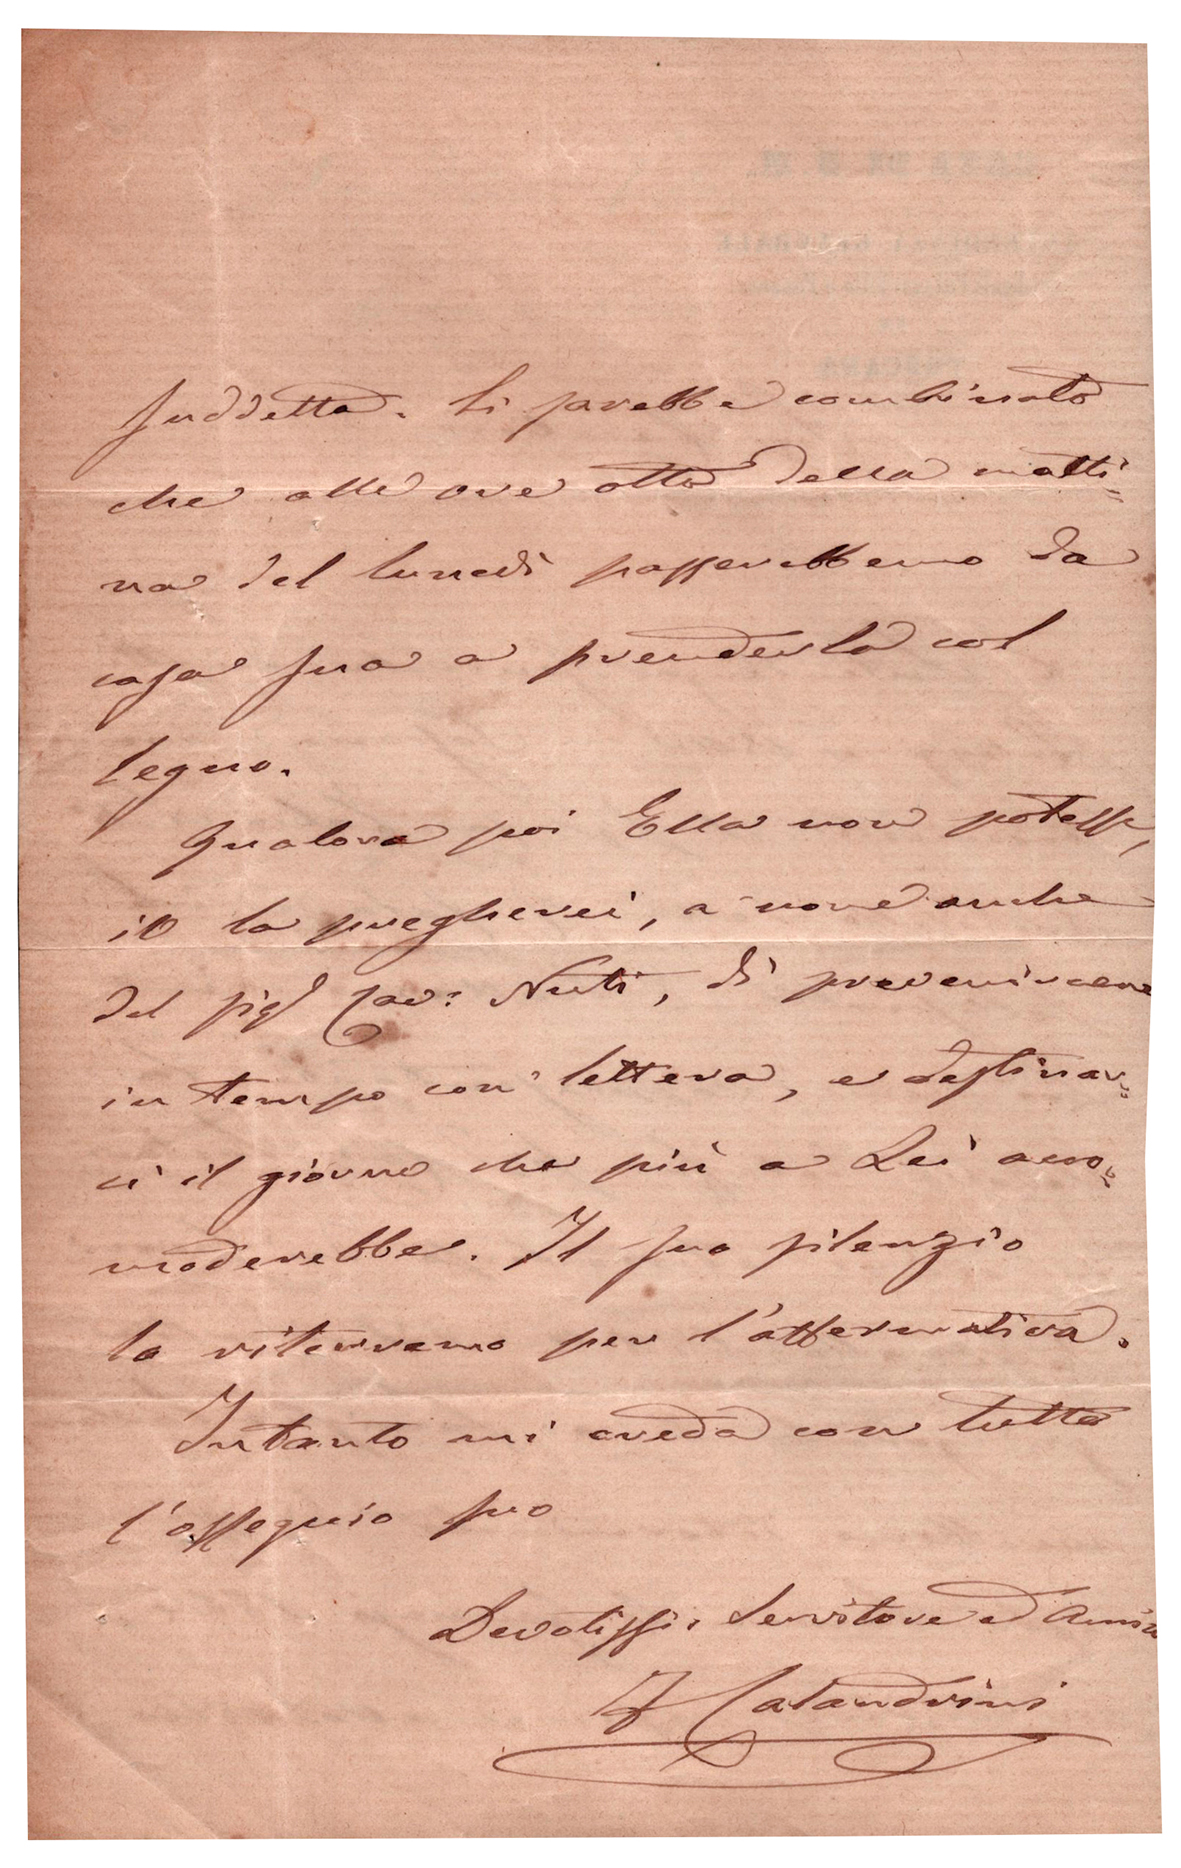 suddetta. Si sarebbe combinato
che alle ore otto della matti=
na del lunedì passerebbemo da
casa sua a prenderla col
legno.
Qualora poi Ella non potesse,
io la pregherei, a nome anche
del sigr Cav: Nuti, di prevenircene
in tempo con lettera, e destinar=
ci il giorno che più a Lei acco=
moderebbe. Il suo silenzio
lo riterremo per l'affermativa.
Intanto mi creda con tutto
l'ossequio suo
Devotissi. Servitore ed Amico
F Calandrini